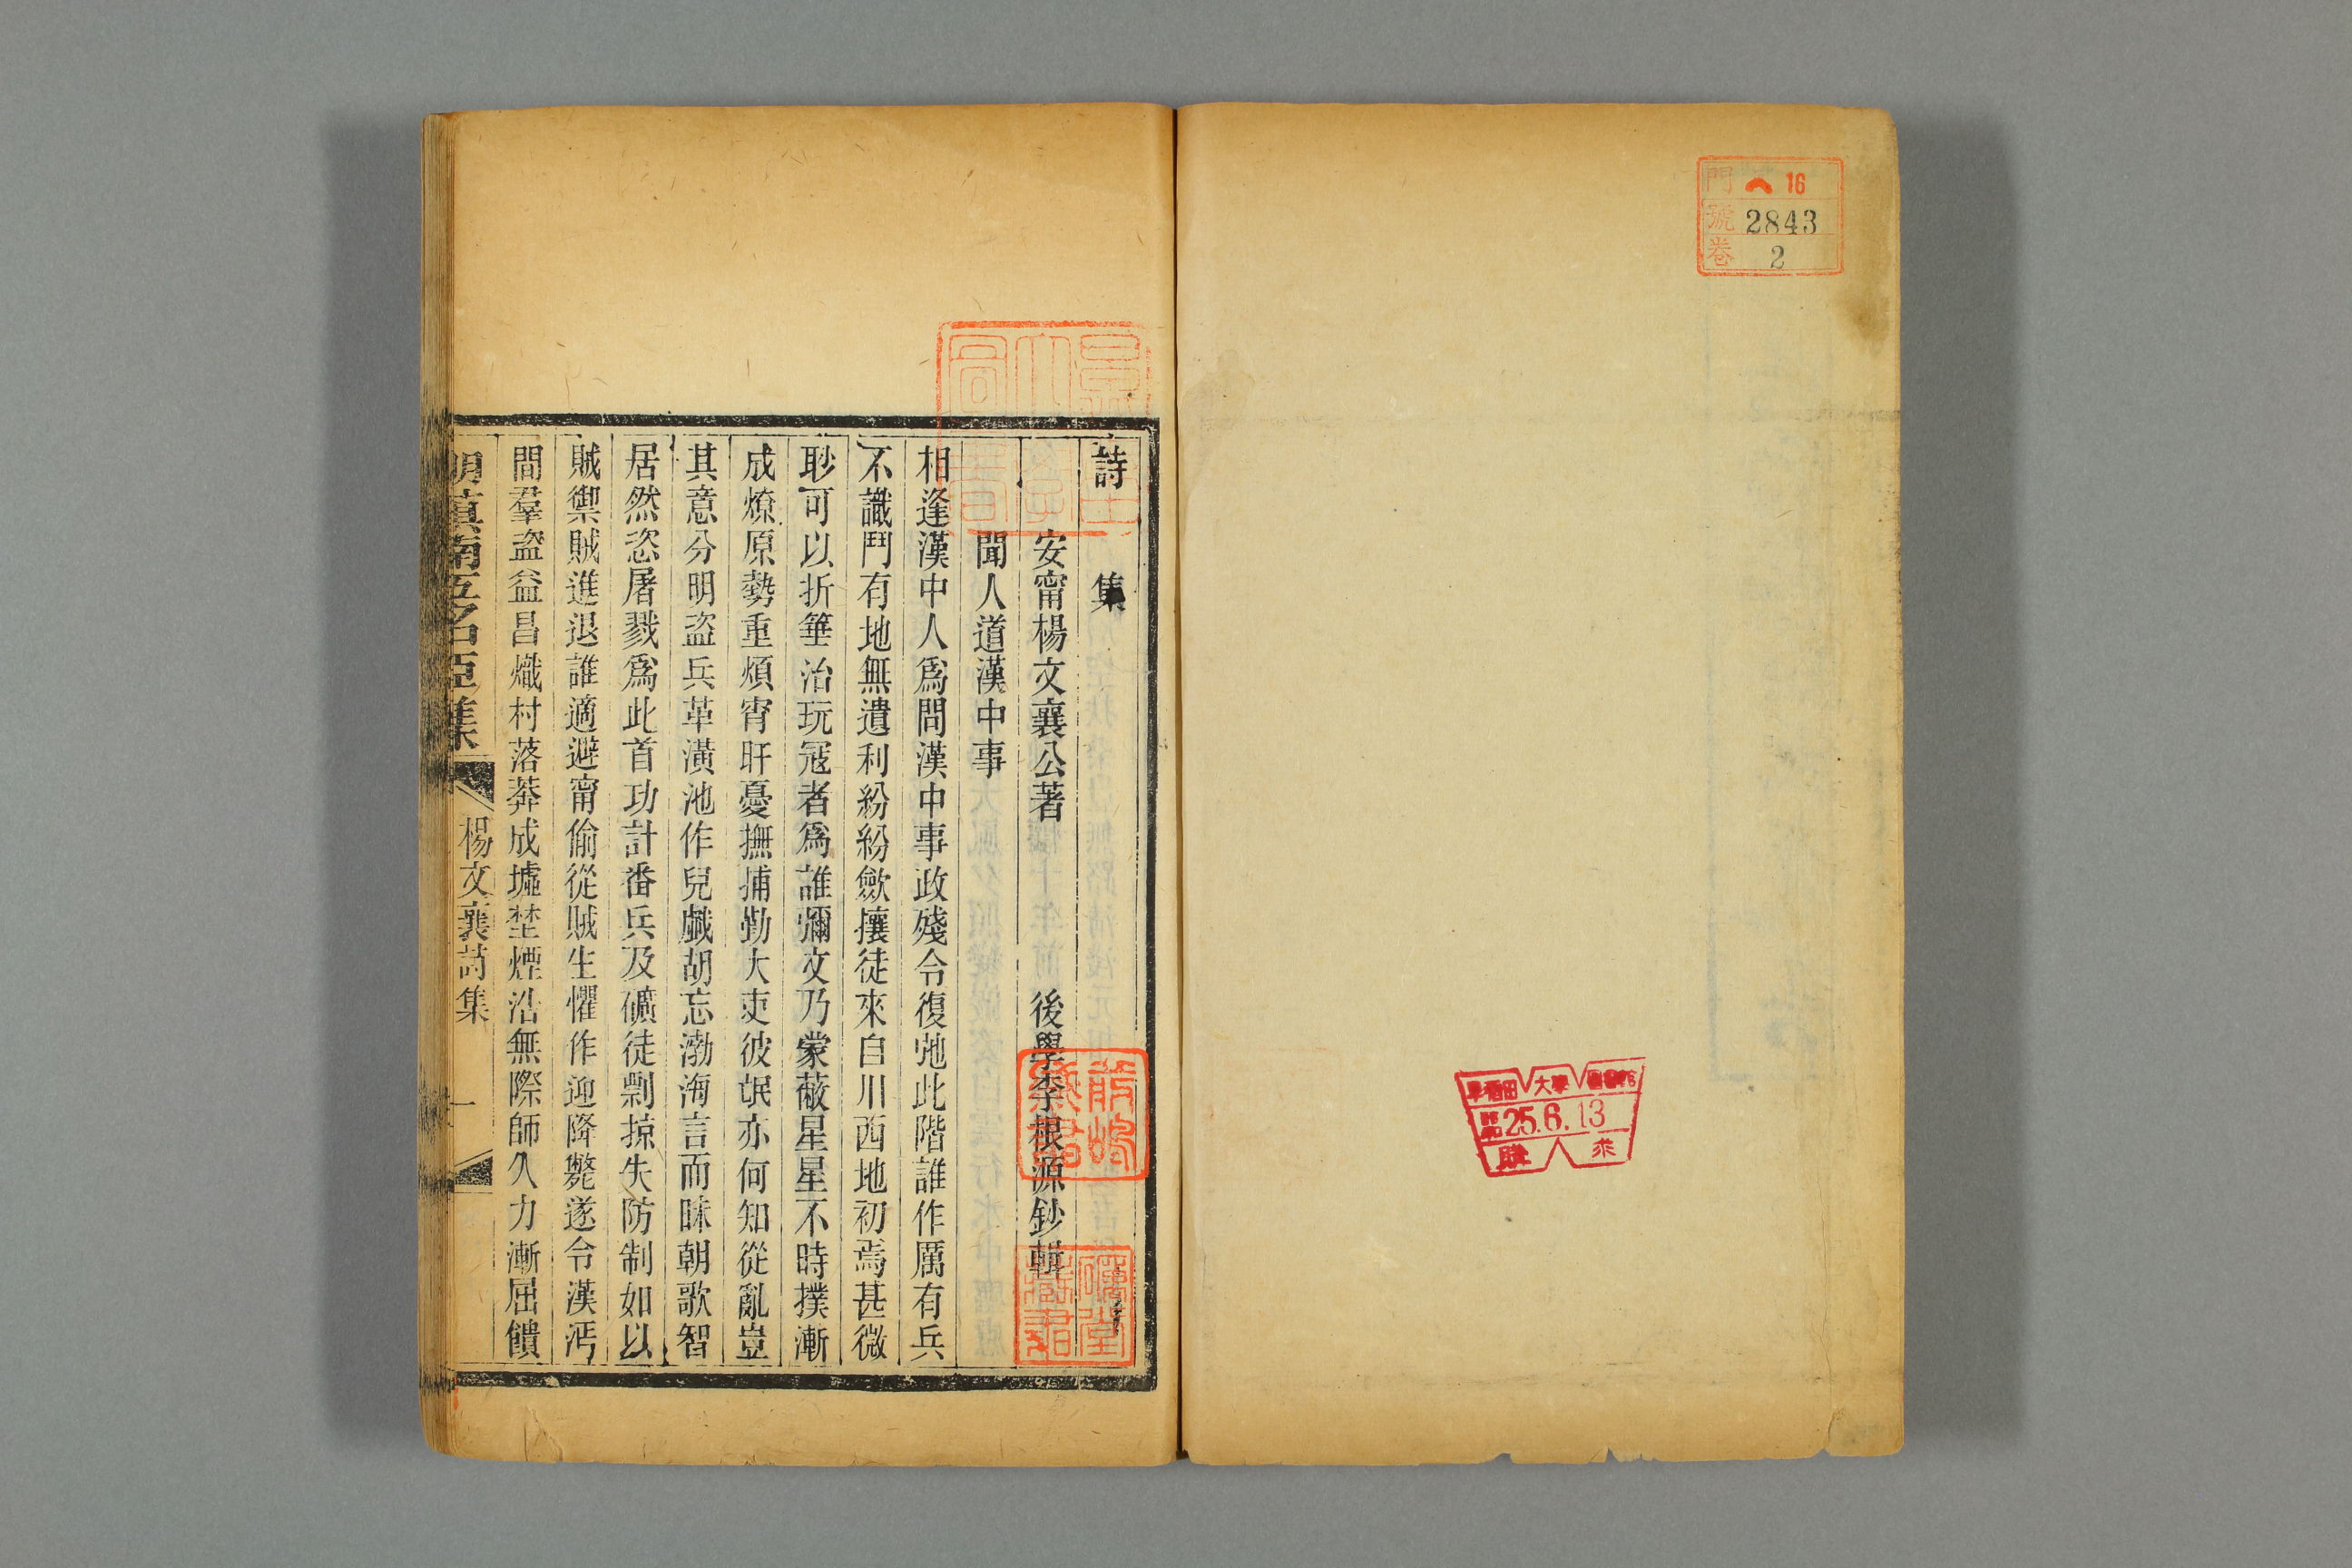 門 へ 16
號 2843
卷 2
早稻田大學圖書館
25.6.13
購 求
詩 集
安甯楊文襄公著 後學李根源鈔輯
聞人道漢中事
相逢漢中人爲問漢中事政殘令復虵此階誰作厲有兵
不識鬥有地無遺利紛紛歛攘徒來自川西地初焉甚微
眇可以折箠治玩冦者爲誰彌文乃蒙蔽星星不時撲漸
成燎原勢重煩宵旰憂撫捕勤大吏彼氓亦何知從亂豈
其意分明盜兵革潢池作兒戱胡忘渤海言而昧朝歌智
居然恣屠戮爲此首功計番兵及礦徒剽掠失防制如以
賊禦賊進退誰適避甯偷從賊生懼作迎降斃遂令漢沔
間羣盜益昌熾村落莽成墟埜煙沿無際師久力漸屈饋
明滇南五名臣集 楊文襄詩集 一